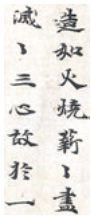 造如火燒薪々盡
滅々三心故於一